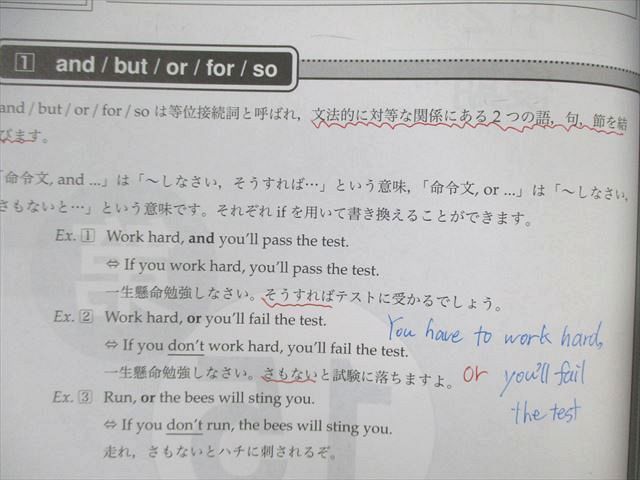 1 and / but / or / for / so
and / but / or / for / so は等位接続詞と呼ばれ，文法的に対等な関係にある2つの語，句，節を結
びます。
「命令文, and ...」は「～しなさい，そうすれば…」という意味，「命令文, or ...」は「～しなさい，
さもないと…」という意味です。それぞれ if を用いて書き換えることができます。
Ex. 1 Work hard, and you'll pass the test.
⇔ If you work hard, you'll pass the test.
一生懸命勉強しなさい。そうすればテストに受かるでしょう。
Ex. 2 Work hard, or you'll fail the test.
⇔ If you don't work hard, you'll fail the test.
一生懸命勉強しなさい。さもないと試験に落ちますよ。
You have to work hard,
or you'll fail
the test
Ex. 3 Run, or the bees will sting you.
⇔ If you don't run, the bees will sting you.
走れ，さもないとハチに刺されるぞ。